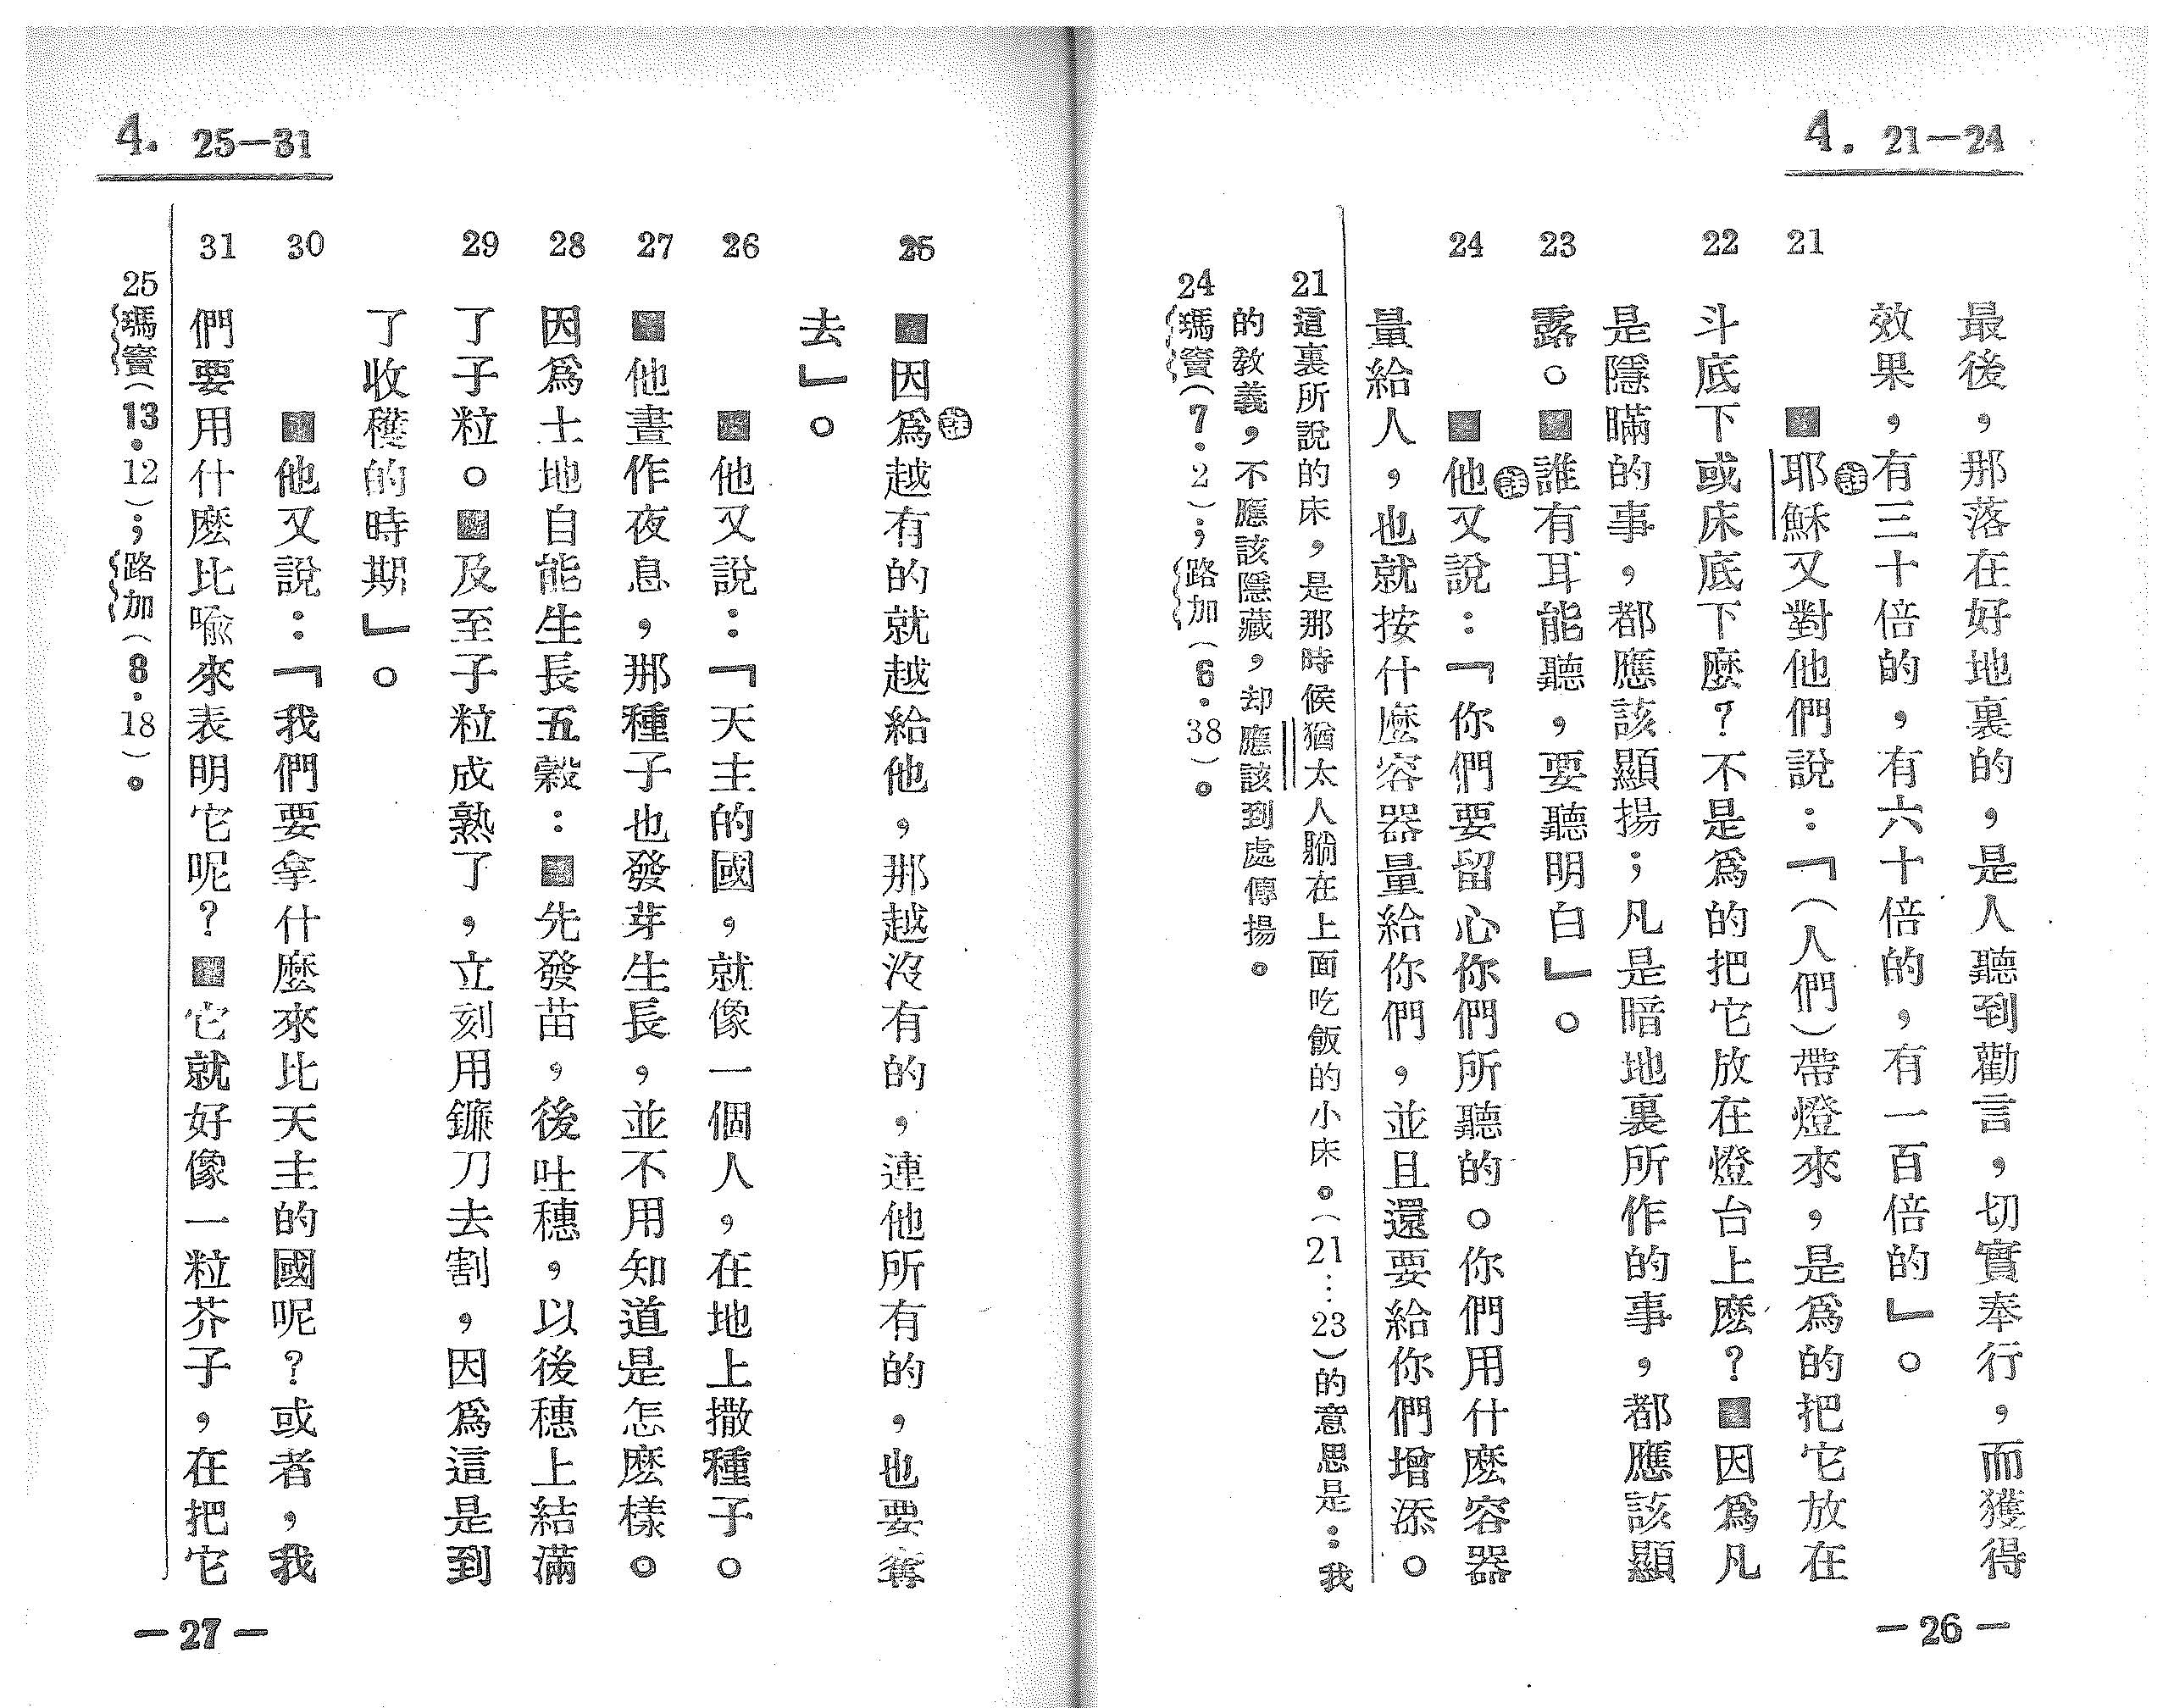 4. 21—24
最後，那落在好地裏的，是人聽到勸言，切實奉行，而獲得
效果，有三十倍的，有六十倍的，有一百倍的」。
21 耶穌㊟又對他們說：「（人們）帶燈來，是爲的把它放在
22 斗底下或床底下麼？不是爲的把它放在燈台上麼？因爲凡
是隱瞞的事，都應該顯揚；凡是暗地裏所作的事，都應該顯
23 露。誰有耳能聽，要聽明白」。
24 他㊟又說：「你們要留心你們所聽的。你們用什麼容器
量給人，也就按什麼容器量給你們，並且還要給你們增添。
21 這裏所說的床，是那時候猶太人躺在上面吃飯的小床。（21…23）的意思是：我
的敎義，不應該隱藏，却應該到處傳揚。
24 瑪竇（7·2）；路加（6·38）。
—26—
4. 25—31
25 因爲㊟越有的就越給他，那越沒有的，連他所有的，也要奪
去」。
26 他又說：「天主的國，就像一個人，在地上撒種子。
27 他晝作夜息，那種子也發芽生長，並不用知道是怎麼樣。
28 因爲土地自能生長五穀：先發苗，後吐穗，以後穗上結滿
29 了子粒。及至子粒成熟了，立刻用鐮刀去割，因爲這是到
了收穫的時期」。
30 他又說：「我們要拿什麼來比天主的國呢？或者，我
31 們要用什麼比喩來表明它呢？它就好像一粒芥子，在把它
25 瑪竇（13·12）；路加（8·18）。
—27—